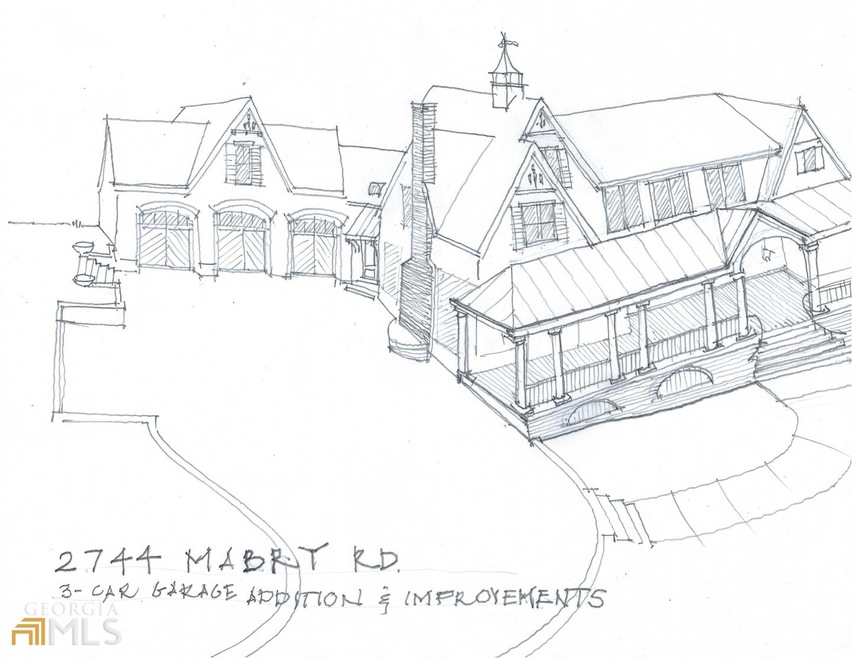 2744 MABRY RD.
3-CAR GARAGE ADDITION & IMPROVEMENTS
GEORGIA
MLS